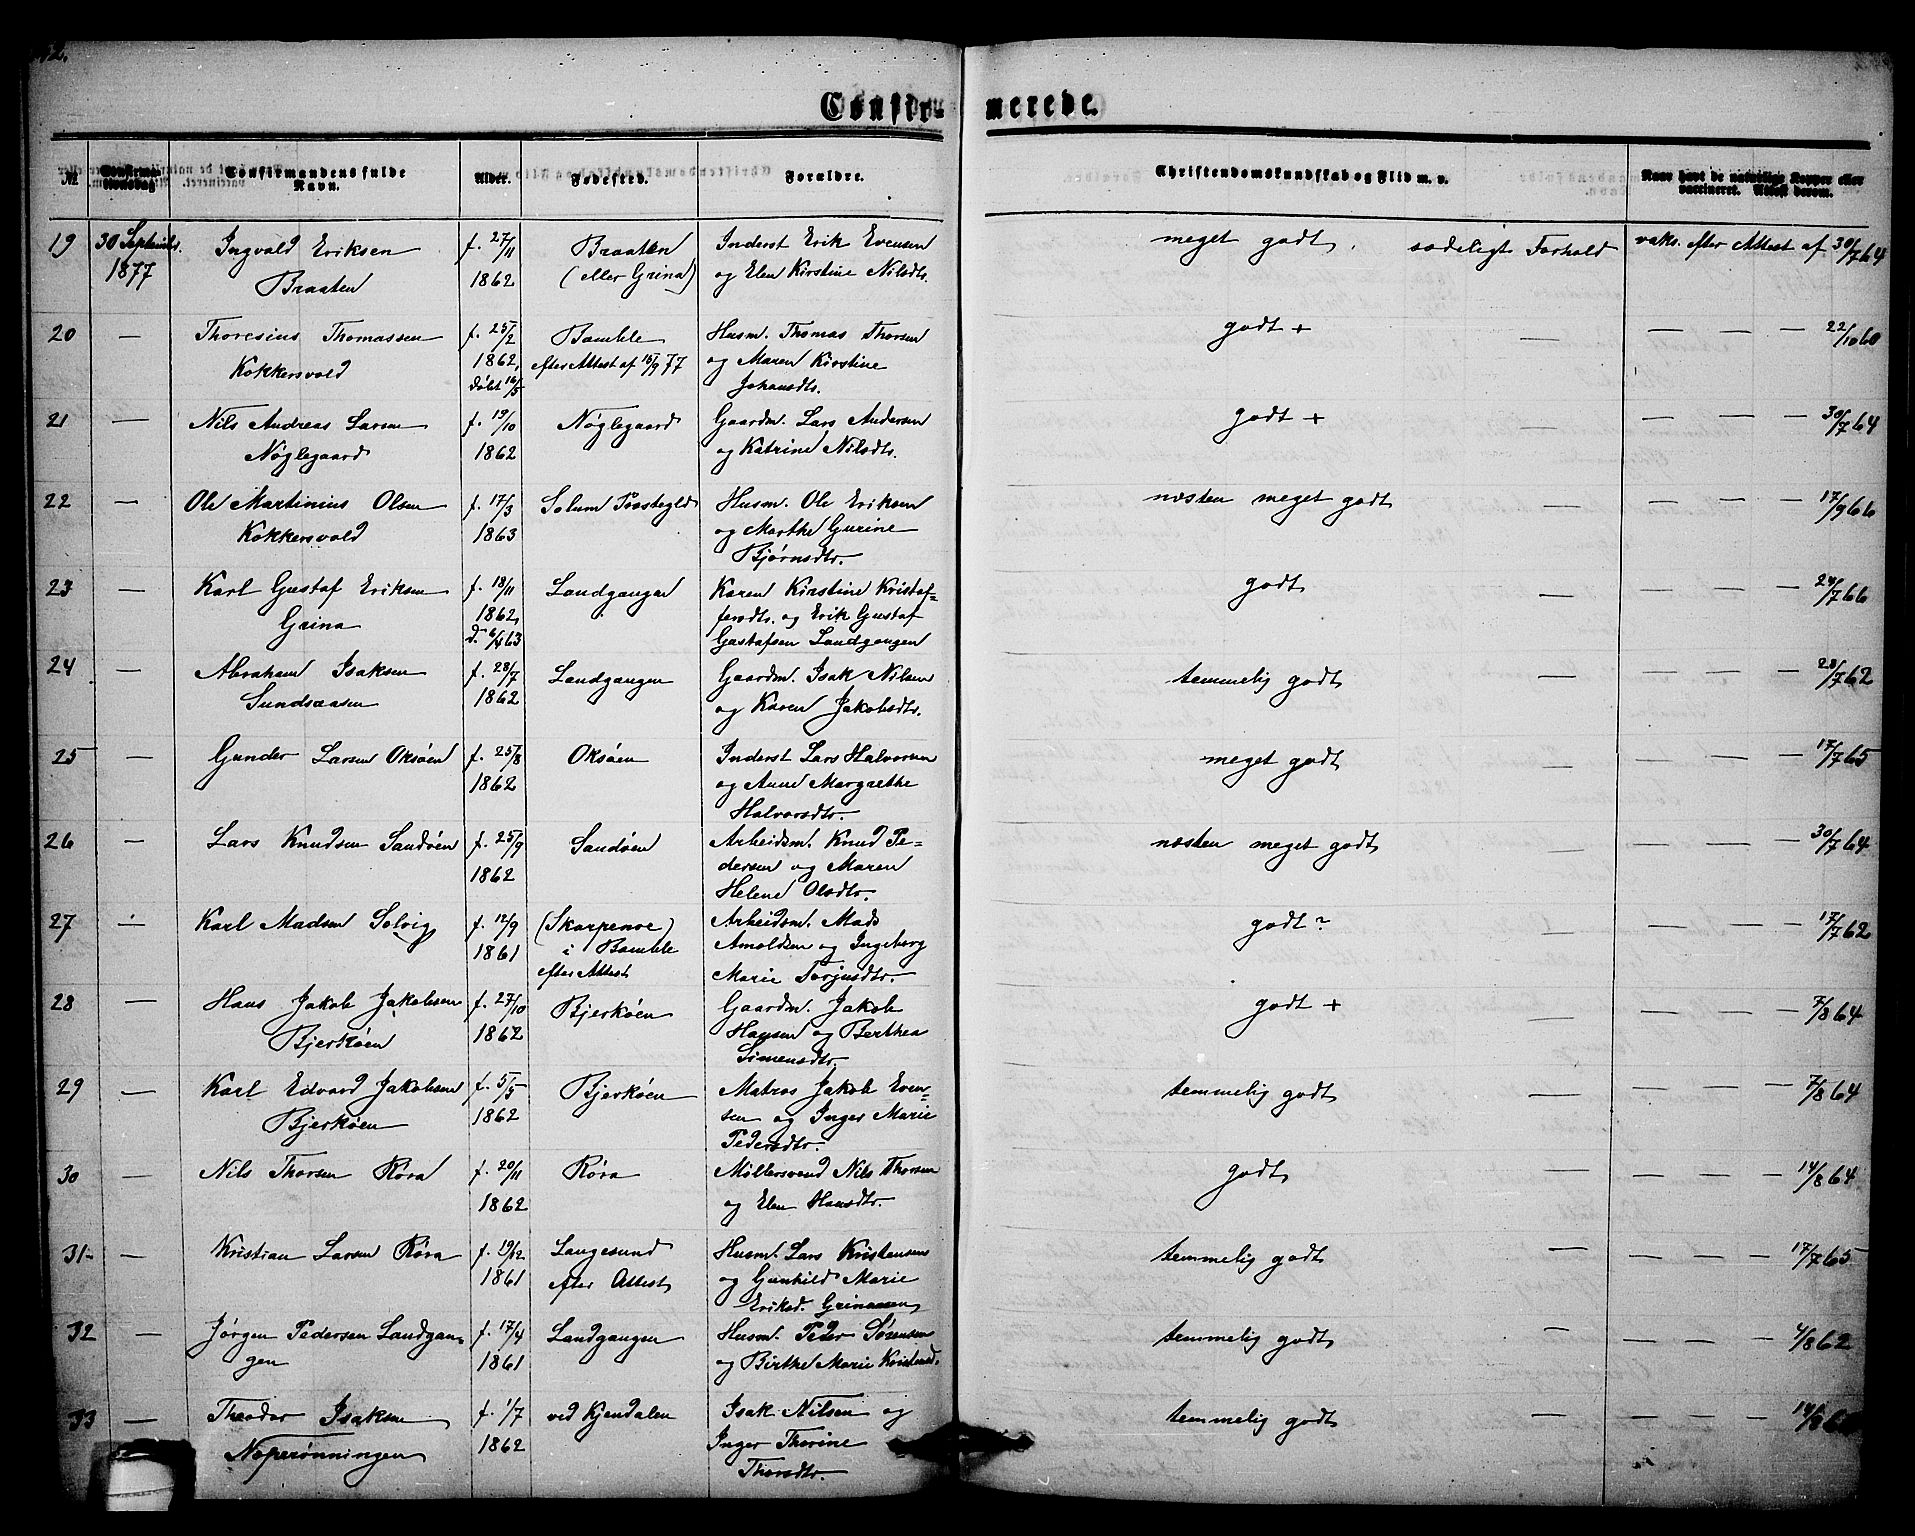 Confir- merede.
№
Confirma-
tionsdag
Confirmandens fulde
Navn.
Alder.
Fødested.
Forældre.
Christendomskundskab og Flid m. v.
Naar havt de naturlige Kopper eller
vaccineret. Attest derom.
19 30 Septembr. Ingvald Eriksen f. 27/11 Braaten Inderst Erik Evensen meget godt. sædeligt Forhold vaks. efter Attest af 30/7 64
1877 Braaten 1862 (eller Grina) og Elen Kirstine Nilsdtr.
20 — Thoresius Thomassen f. 25/2 Bamble Husm. Thomas Thorsen godt + — — — — 22/10 60
Kokkersvold 1862, efter Attest af 15/9 77 og Maren Kirstine
døbt 16/5 Johansdtr.
21 — Nils Andreas Larsen f. 19/10 Nøglegaard Gaardm. Lars Andersen godt + — — — — 30/7 64
Nøglegaard 1862 og Katrine Nilsdtr.
22 — Ole Martinius Olsen f. 17/3 Solum Præstegld Husm. Ole Eriksen næsten meget godt — — — — 17/9 66
Kokkersvold 1863 og Marthe Gurine
Bjørnsdtr.
23 — Karl Gustaf Eriksen f. 18/11 Landgangen Karen Kirstine Kristof- godt — — — — 24/7 66
Grina 1862, fersdtr. og Erik Gustaf
d. 6/4 63 Gustafsen Landgangen
24 — Abraham Isaksen f. 28/7 Landgangen Gaardm. Isak Nilsen temmelig godt — — — — 28/7 62
Sundsaasen 1862 og Karen Jakobsdtr.
25 — Gunder Larsen Oksøen f. 25/8 Oksøen Inderst Lars Halvorsen meget godt — — — — 17/7 65
1862 og Anne Margrethe
Halvorsdtr.
26 — Lars Knudsen Sandøen f. 25/9 Sandøen Arbeidsm. Knud Pe- næsten meget godt — — — — 30/7 64
1862 dersen og Maren
Helene Olsdtr.
27 — Karl Madsen Solvig f. 12/9 (Skarpenoe) Arbeidsm. Mads godt? — — — — 17/7 62
1861 i Bamble Arnoldsen og Ingeborg
efter Attest Marie Torjusdtr.
28 — Hans Jakob Jakobsen f. 27/10 Bjerkøen Gaardm. Jakob godt + — — — — 7/8 64
Bjerkøen 1862 Hansen og Berthea
Simensdtr.
29 — Karl Edvard Jakobsen f. 5/5 Bjerkøen Matros Jakob Even- temmelig godt — — — — 7/8 64
Bjerkøen 1862 sen og Inger Marie
Pedersdtr.
30 — Nils Thorsen Røra f. 20/11 Røra Møllersvend Nils Thorsen godt — — — — 14/8 64
1862 og Elen Hansdtr.
31- — Kristian Larsen Røra f. 19/12 Langesund Husm. Lars Kristensen temmelig godt — — — — 17/7 65
1861 efter Attest og Gunhild Marie
Eriksd. Grinaasen
32 — Jørgen Pedersen Landgan- f. 17/4 Landgangen Husm. Peder Sørensen temmelig godt — — — — 4/8 62
gen 1861 og Birthe Marie Kristensd.
33 — Theodor Isaksen f. 1/7 ved Kjendalen Isak Nilsen og temmelig godt — — — — 14/8
Noperønningen 1862 Inger Thorine
Thorsdtr.